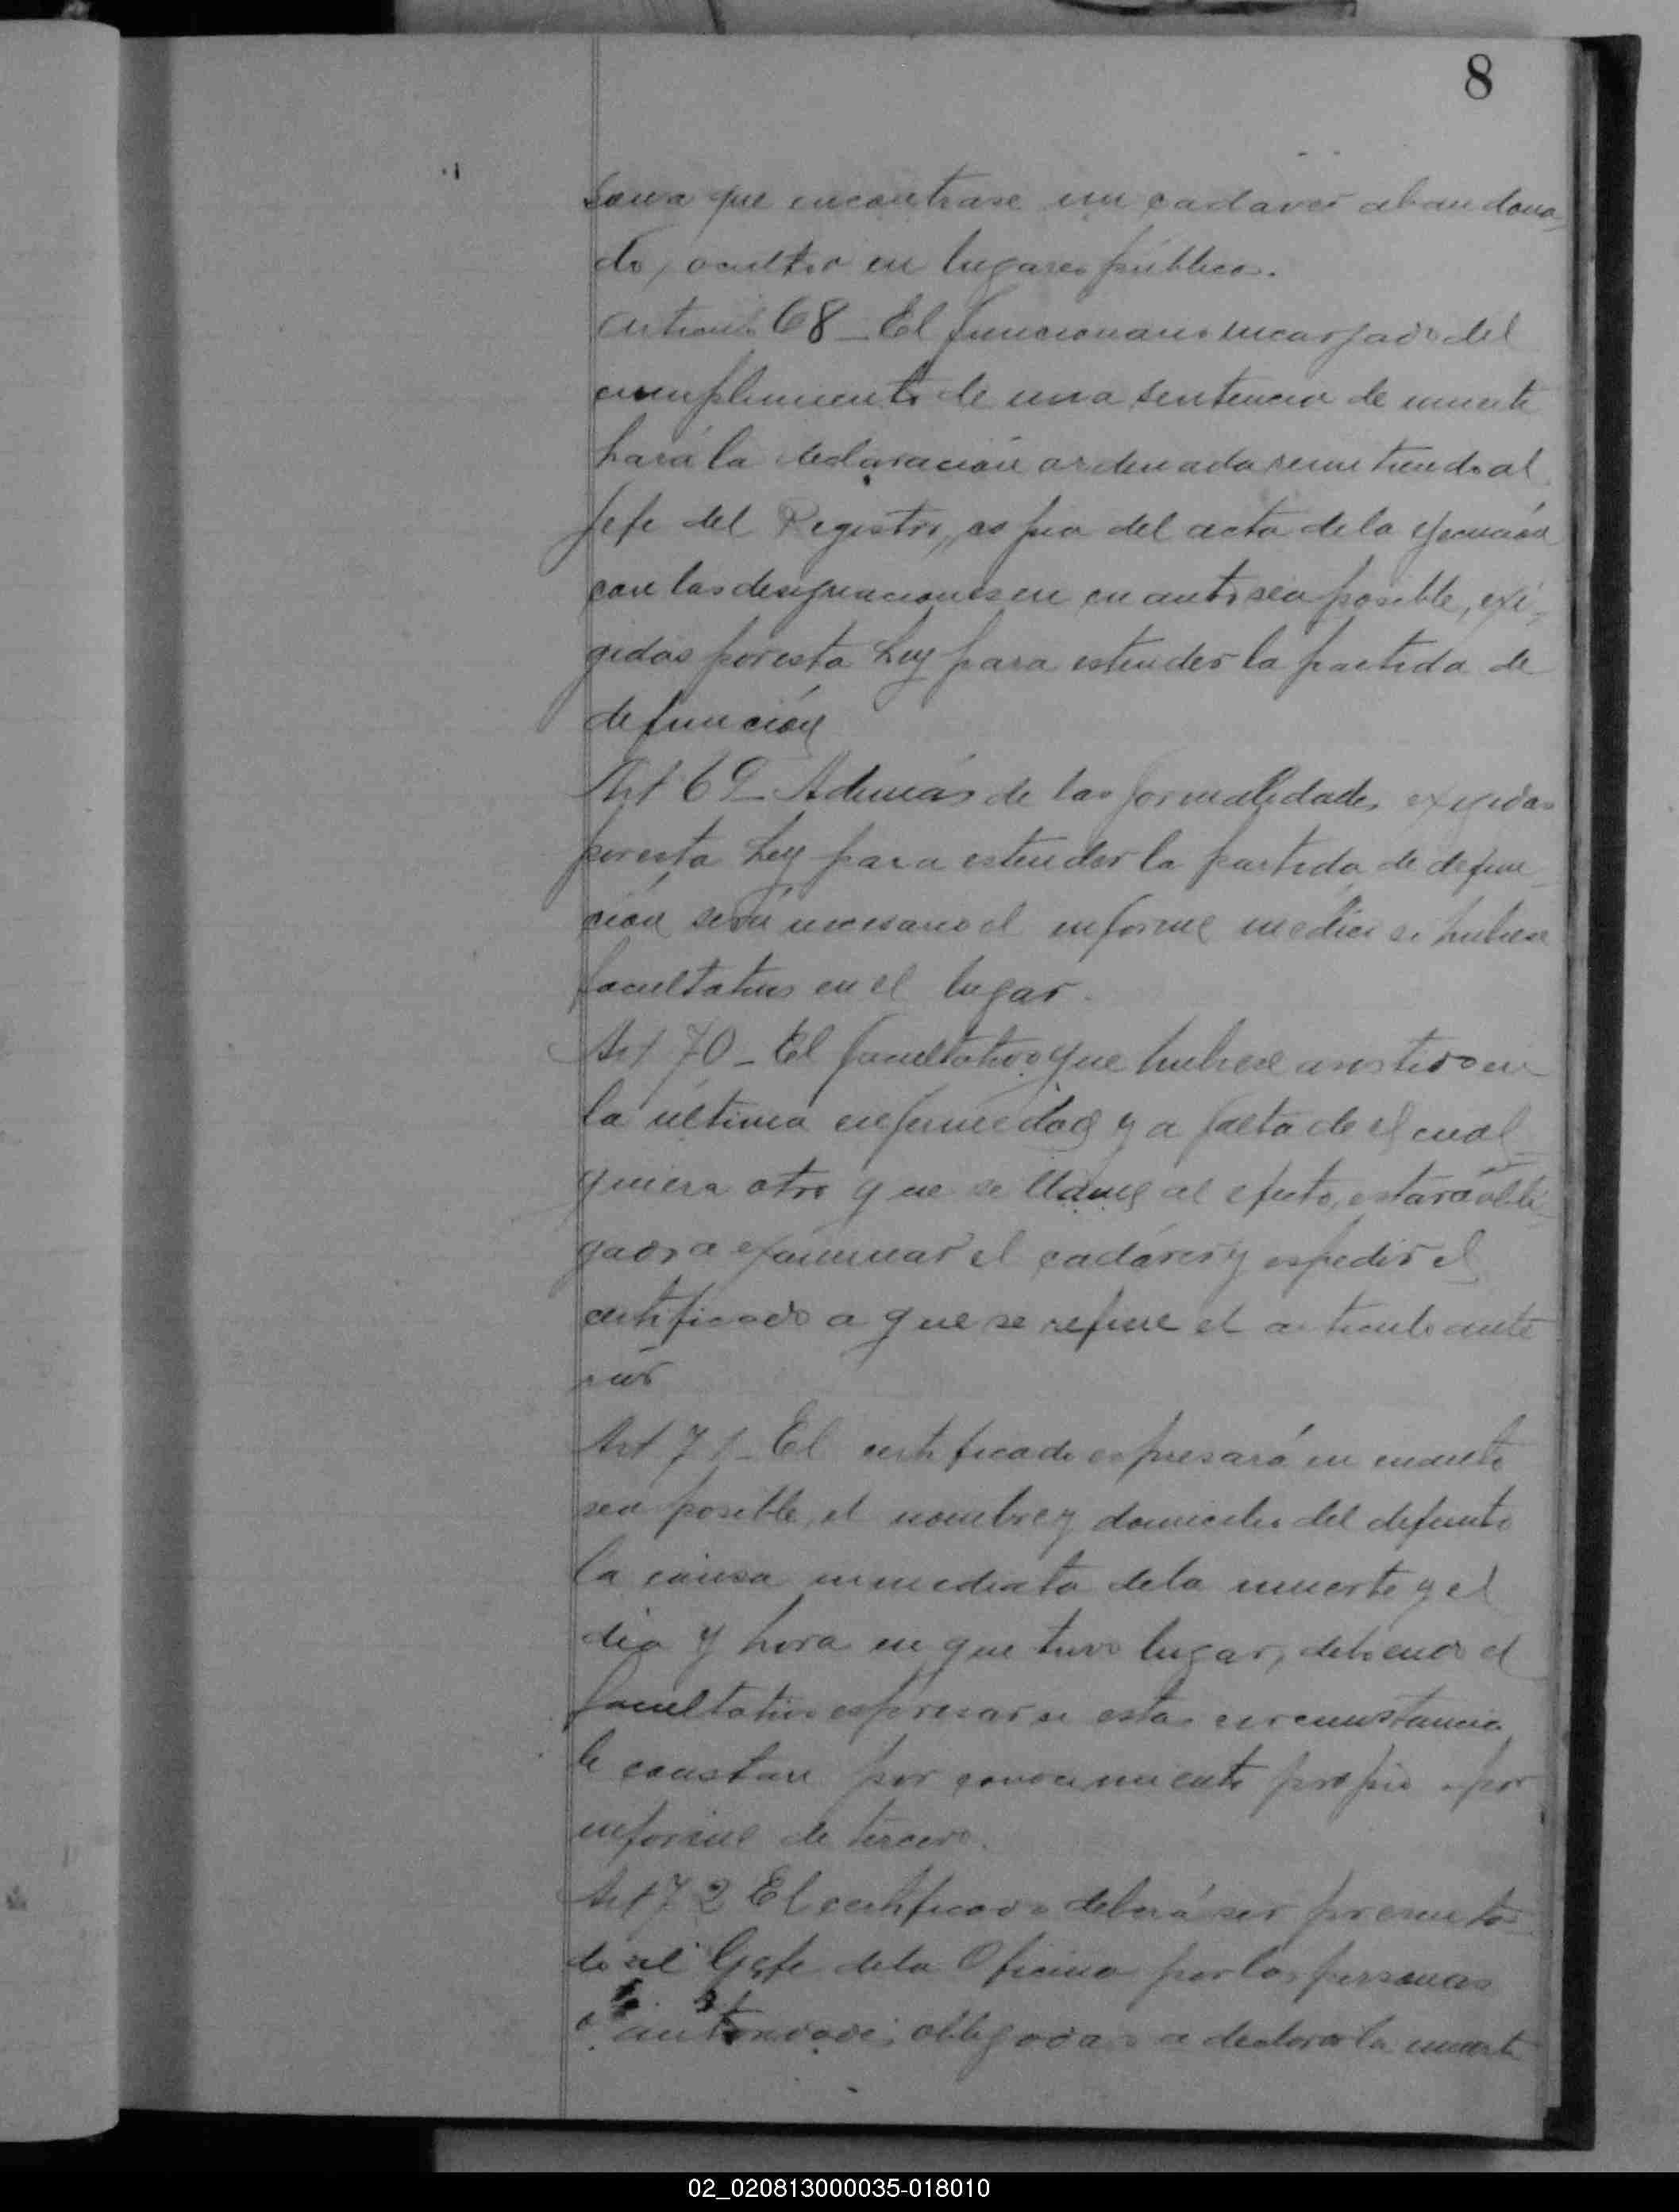 8
sona que encontrase un cadaver abandona-
do, oculto o en lugares públicos.
Artículo 68 _ El funcionario encargado del
cumplimiento de una sentencia de muerte
hará la declaración ordenada remitiendo al
Jefe del Registro, copia del acta de la ejecución
con las designaciones en cuanto sea posible, exi-
gidas por esta Ley para estender la partida de
defunción
Art 69 _ Además de las formalidades exigidas
por esta Ley para estender la partida de defun-
ción será necesario el informe médico si hubiese
facultativo en el lugar.
Art 70 _ El facultativo que hubiese asistido en
la última enfermedad y a falta de el cual-
quiera otro que se llame al efecto, estará obli-
gado a examinar el cadáver y espedir el
certificado a que se refiere el articulo ante
rior
Art 71 _ El certificado espresará en cuanto
sea posible, el nombre y domicilio del difunto
la causa inmediata de la muerte y el
dia y hora en que tuvo lugar, debiendo el
facultativo espresar si estas circunstancias
le constan por conocimiento propio o por
informe de tercero.
Art 72 El certificado deberá ser presenta-
do al Gefe de la Oficina por las personas
o autoridades obligadas a declarar la muerte
02_020813000035-018010